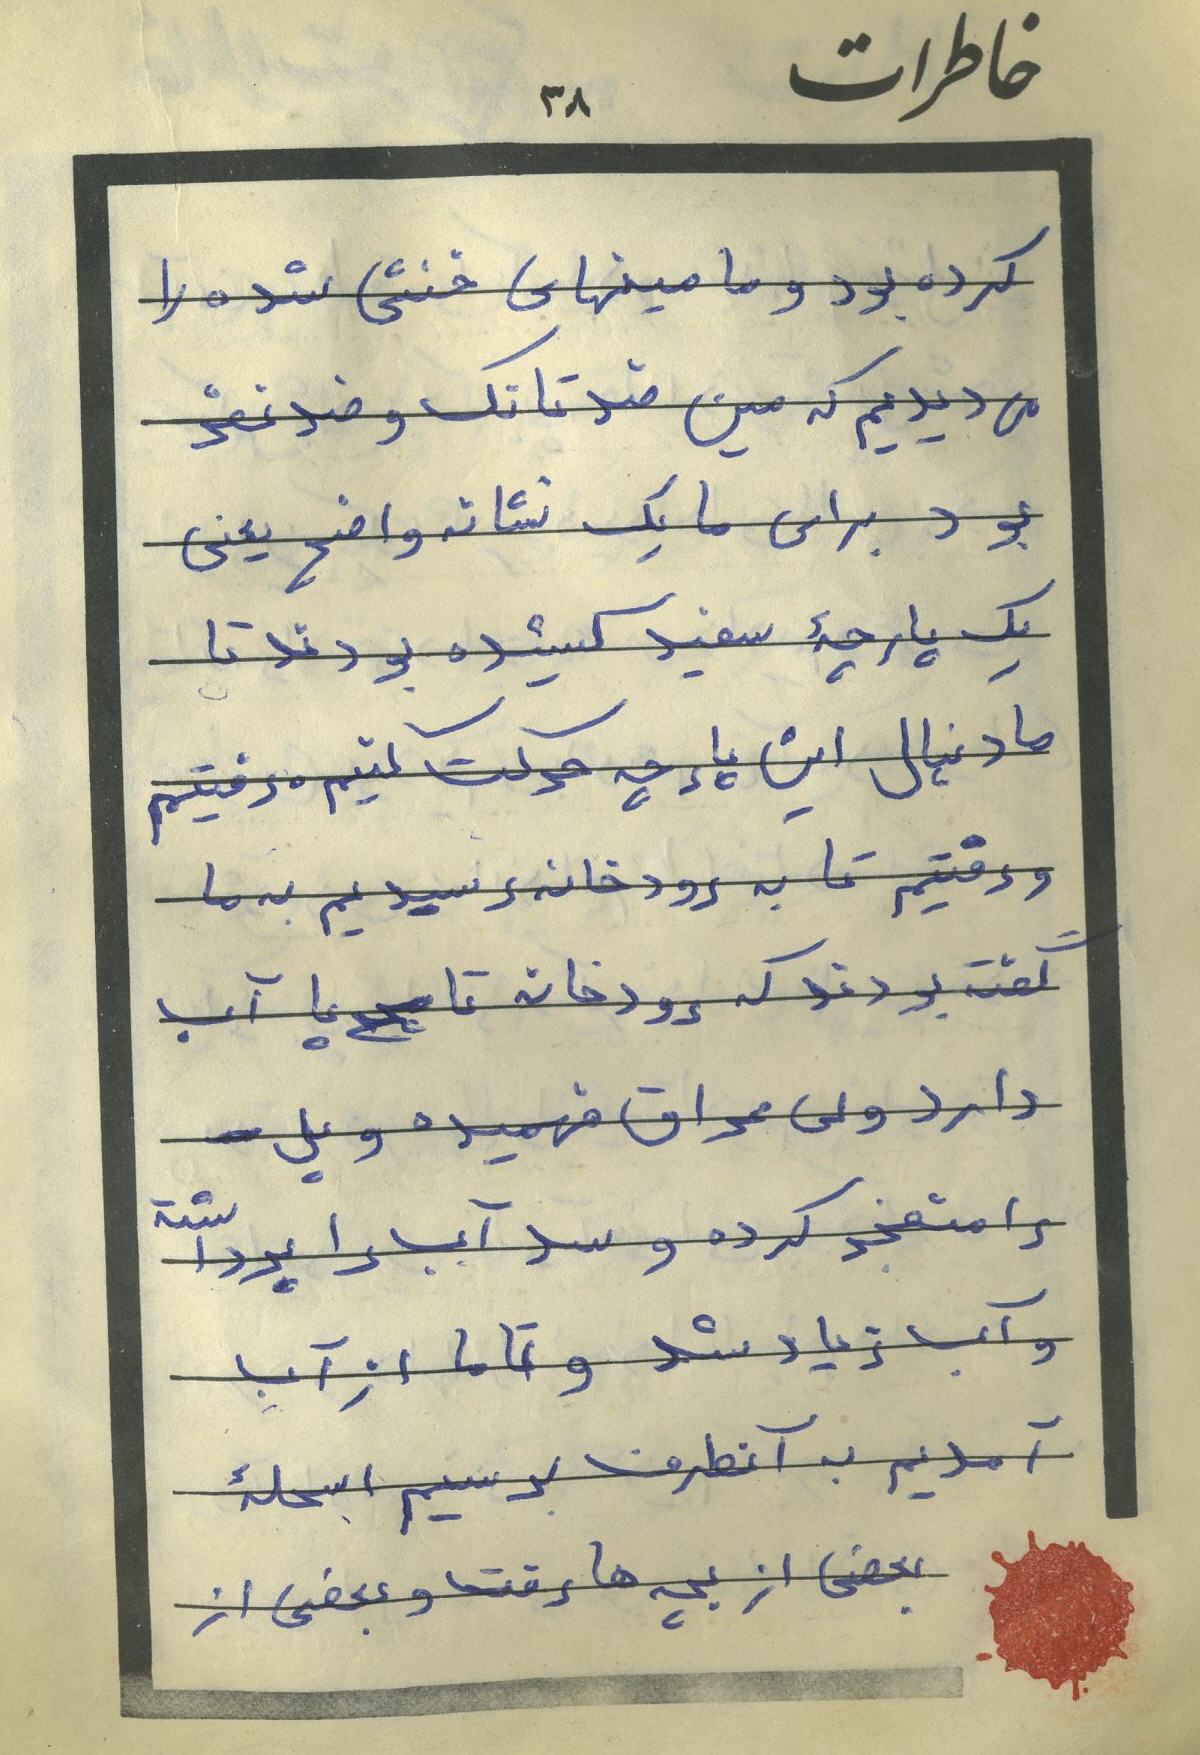 خاطرات
۳۸
کرده بود و ما مینهای خنثی شده را
می دیدیم که مین ضد تانک و ضد نفر
بود برای ما یک نشانه واضح یعنی
یک پارچهٔ سفید کشیده بودند تا
ما دنبال این پارچه حرکت کنیم رفتیم
و رفتیم تا به رودخانه رسیدیم به ما
گفته بودند که رودخانه تا پا آب
دارد ولی عراق فهمیده و پل
را منفجر کرده و سد آب را برداشته
و آب زیاد شد و تا ما از آب
آمدیم به آنطرف برسیم اسحلهٔ
بعضی از بچه ها رفت و بعضی از